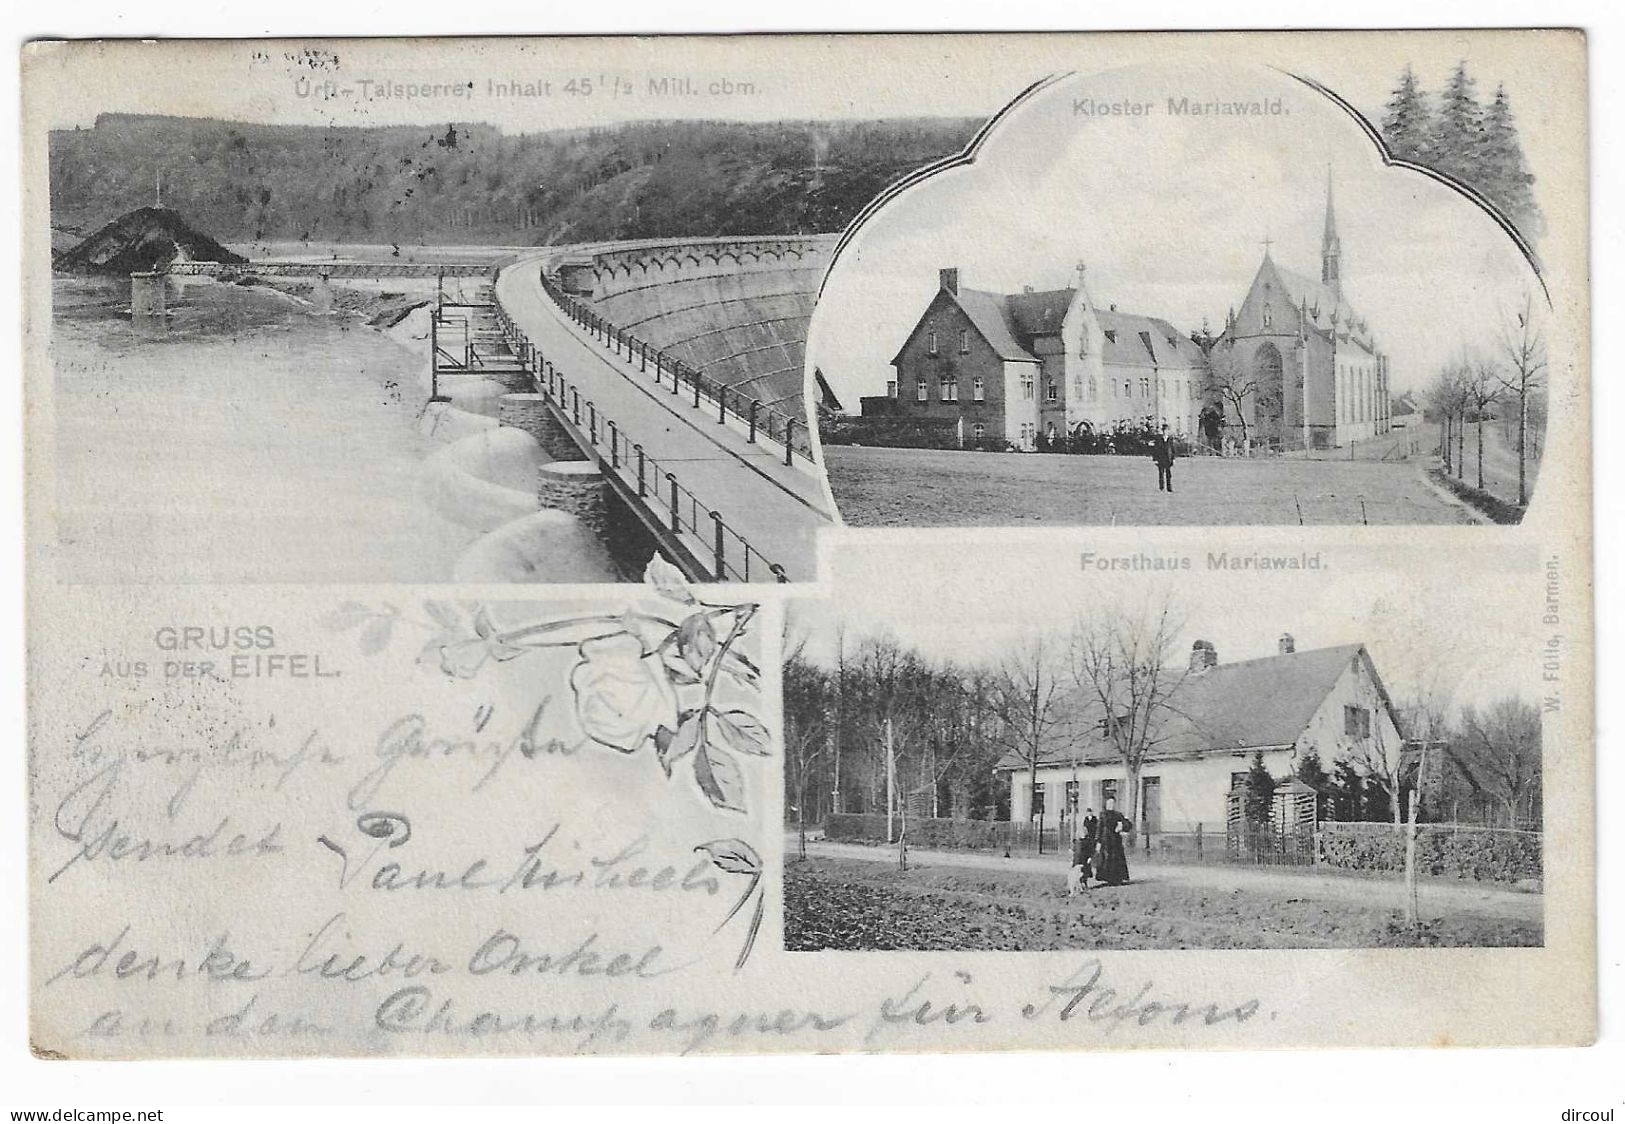 Urft-Talsperre, Inhalt 45 1/2 Mill. cbm.
Kloster Mariawald.
Forsthaus Mariawald.
W. Fülle, Barmen.
GRUSS
AUS DER EIFEL.
Herzliche Grüße
sendet Paul
denke lieber Onkel
an den Champagner für Alfons.
www.delcampe.net
dircoul